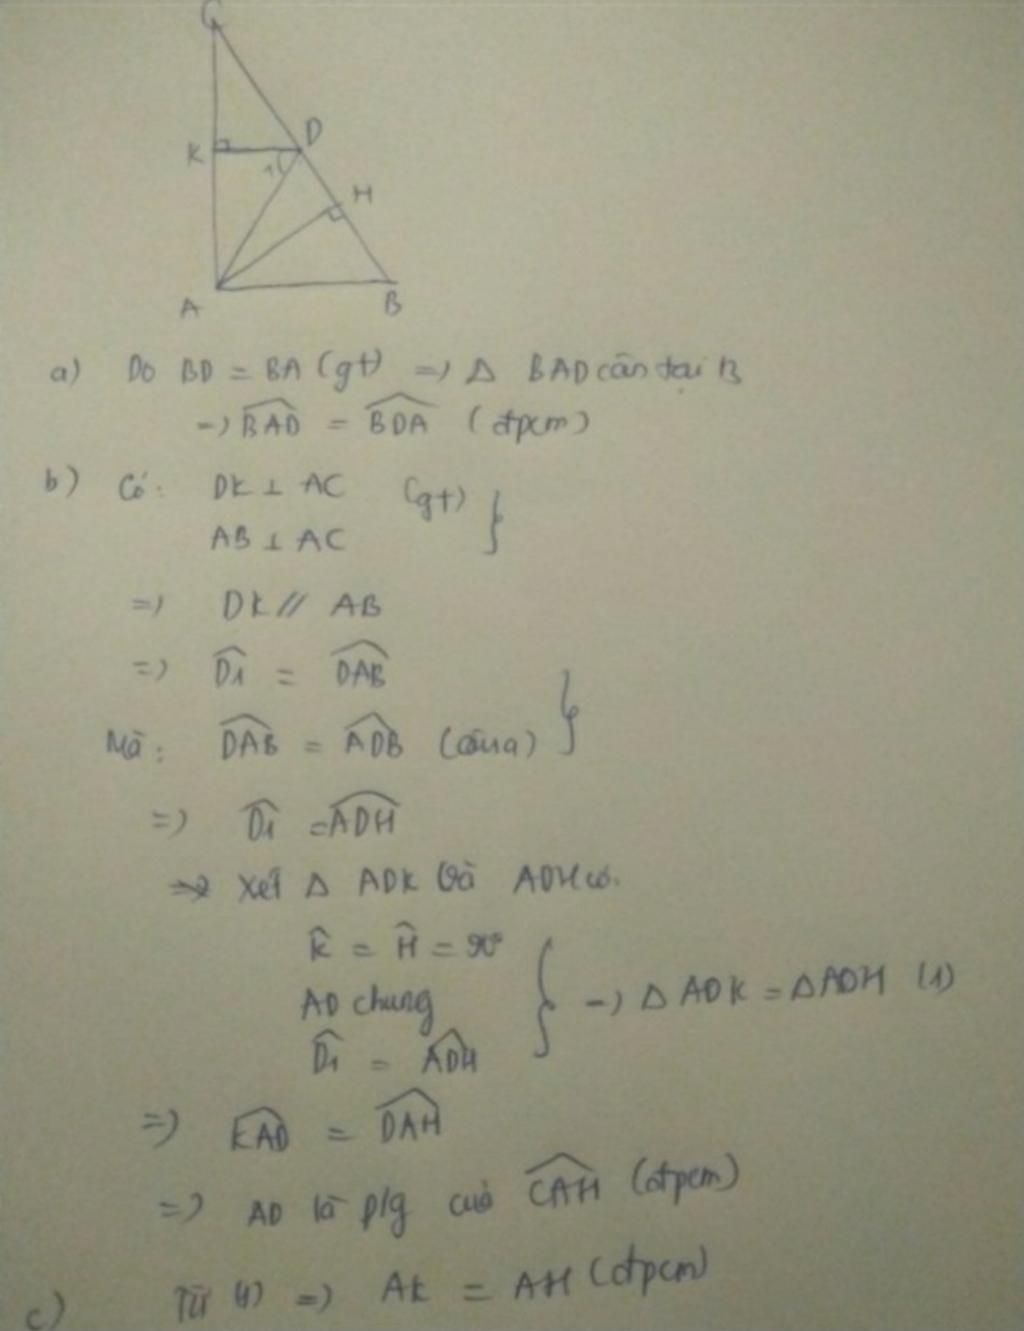 C
K
D
1
H
A
B
a) Do BD = BA (gt) => Δ BAD cân tại B
=> \widehat{BAD} = \widehat{BDA} (đpcm)
b) Có: DK ⊥ AC (gt) }
AB ⊥ AC
=> DK // AB
=> \widehat{D1} = \widehat{DAB} }
Mà: \widehat{DAB} = \widehat{ADB} (câu a)
=> \widehat{D1} = \widehat{ADH}
Xét Δ ADK và ADH có.
\widehat{K} = \widehat{H} = 90°
AD chung } => Δ ADK = Δ ADH (1)
\widehat{D1} = \widehat{ADH}
=> \widehat{KAD} = \widehat{DAH}
=> AD là p/g của \widehat{CAH} (đpcm)
c) Từ (1) => AK = AH (đpcm)